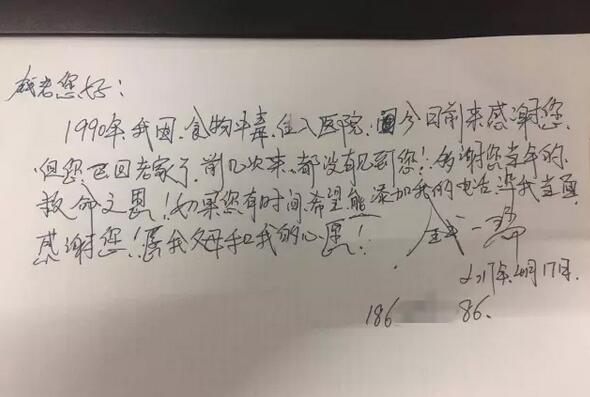 钱老您好：
1990年我因.食物中毒.住入医院.今日前来感谢您.
但您已回老家了.前几次来.都没有见到您！多谢您当年的
救命之恩！如果您有时间希望能添加我的电话.让我当面
感谢您！我父母和我的心愿！
2017年4月17日.
186 86.